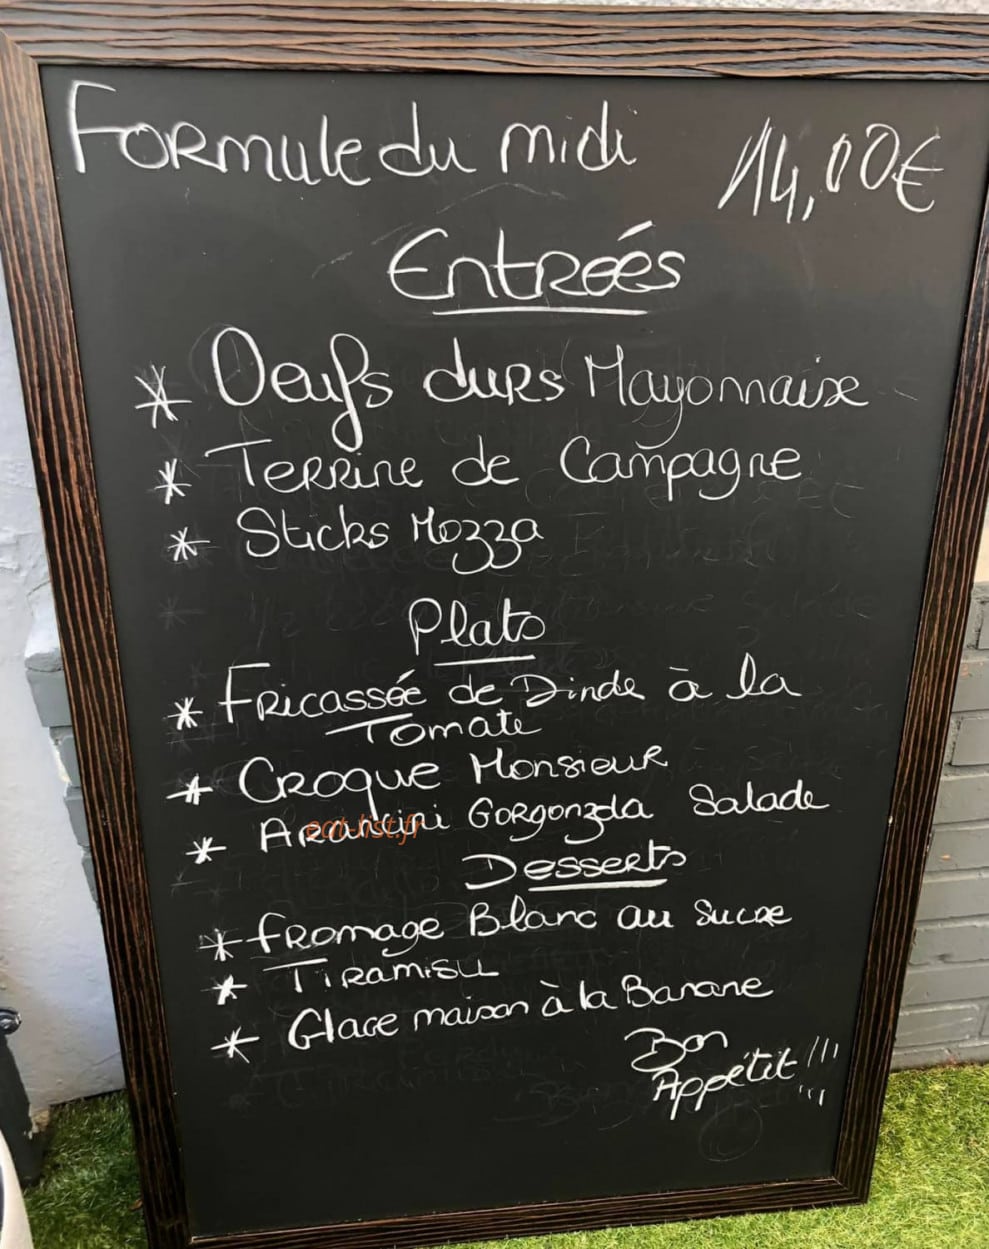 Formule du midi 14,00€
Entreés
* Oeufs durs Mayonnaise
* Terrine de Campagne
* Sticks Mozza
Plats
* Fricassée de Dinde à la
Tomate
* Croque Monsieur
* Arancini Gorgonzola Salade
eat-list.fr
Desserts
* fromage Blanc au Sucre
* Tiramisu
* Glace maison à la Banane
Bon
Appétit !!!